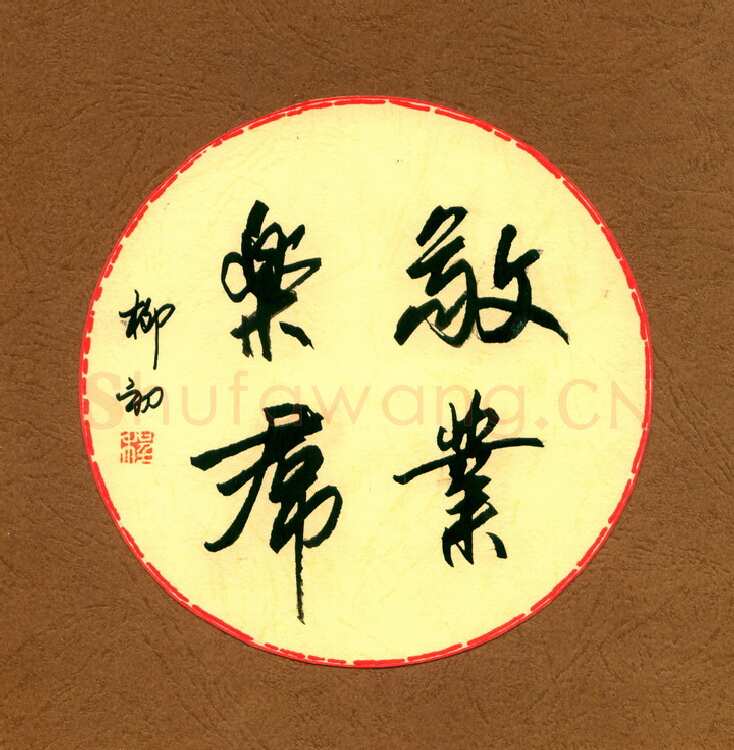 敬業
樂羣
柳初
Shufawang.CN